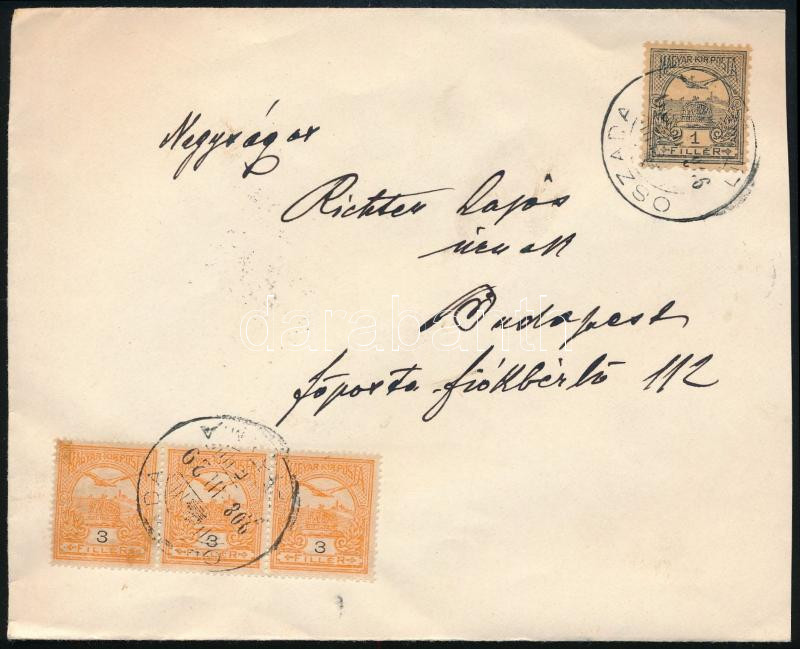 MAGYAR KIR. POSTA
1
FILLÉR
OSZADA
Negyságos
Richter Lajos
úrnak
Budapest
főposta fiókbérlő 112
darabanth
MAGYAR KIR. POSTA
MAGYAR KIR. POSTA
MAGYAR KIR. POSTA
908
3
3
3
FILLÉR
FILLÉR
FILLÉR